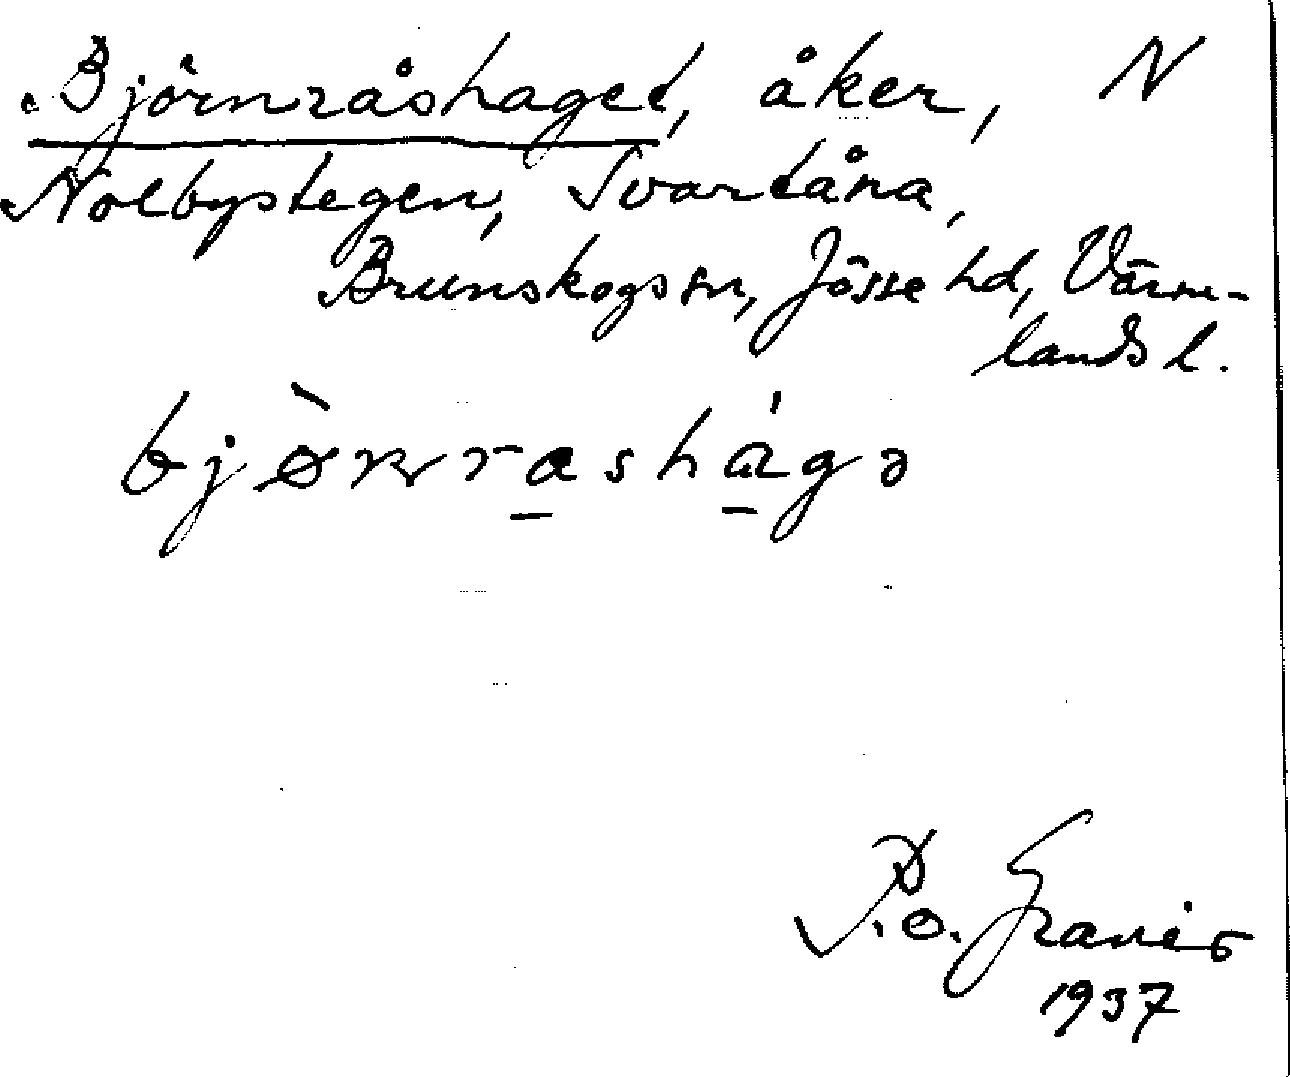 Björnråshaget, åker, N
Nolbystegen, Svartåna,
Brunskogs sn, Jösse hd, Värm-
lands l.
bjønrashága
P.O.
1937